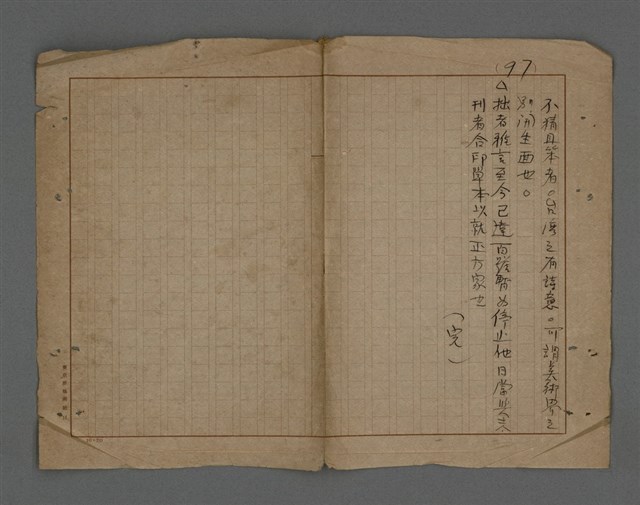 (97)
不精且笨者。台灣之有詩意。可謂美術界之
別開生面也。
△拙者雅言至今已達百號暫為停止他日當與未
刊者合印單本以就正方家也
(完)